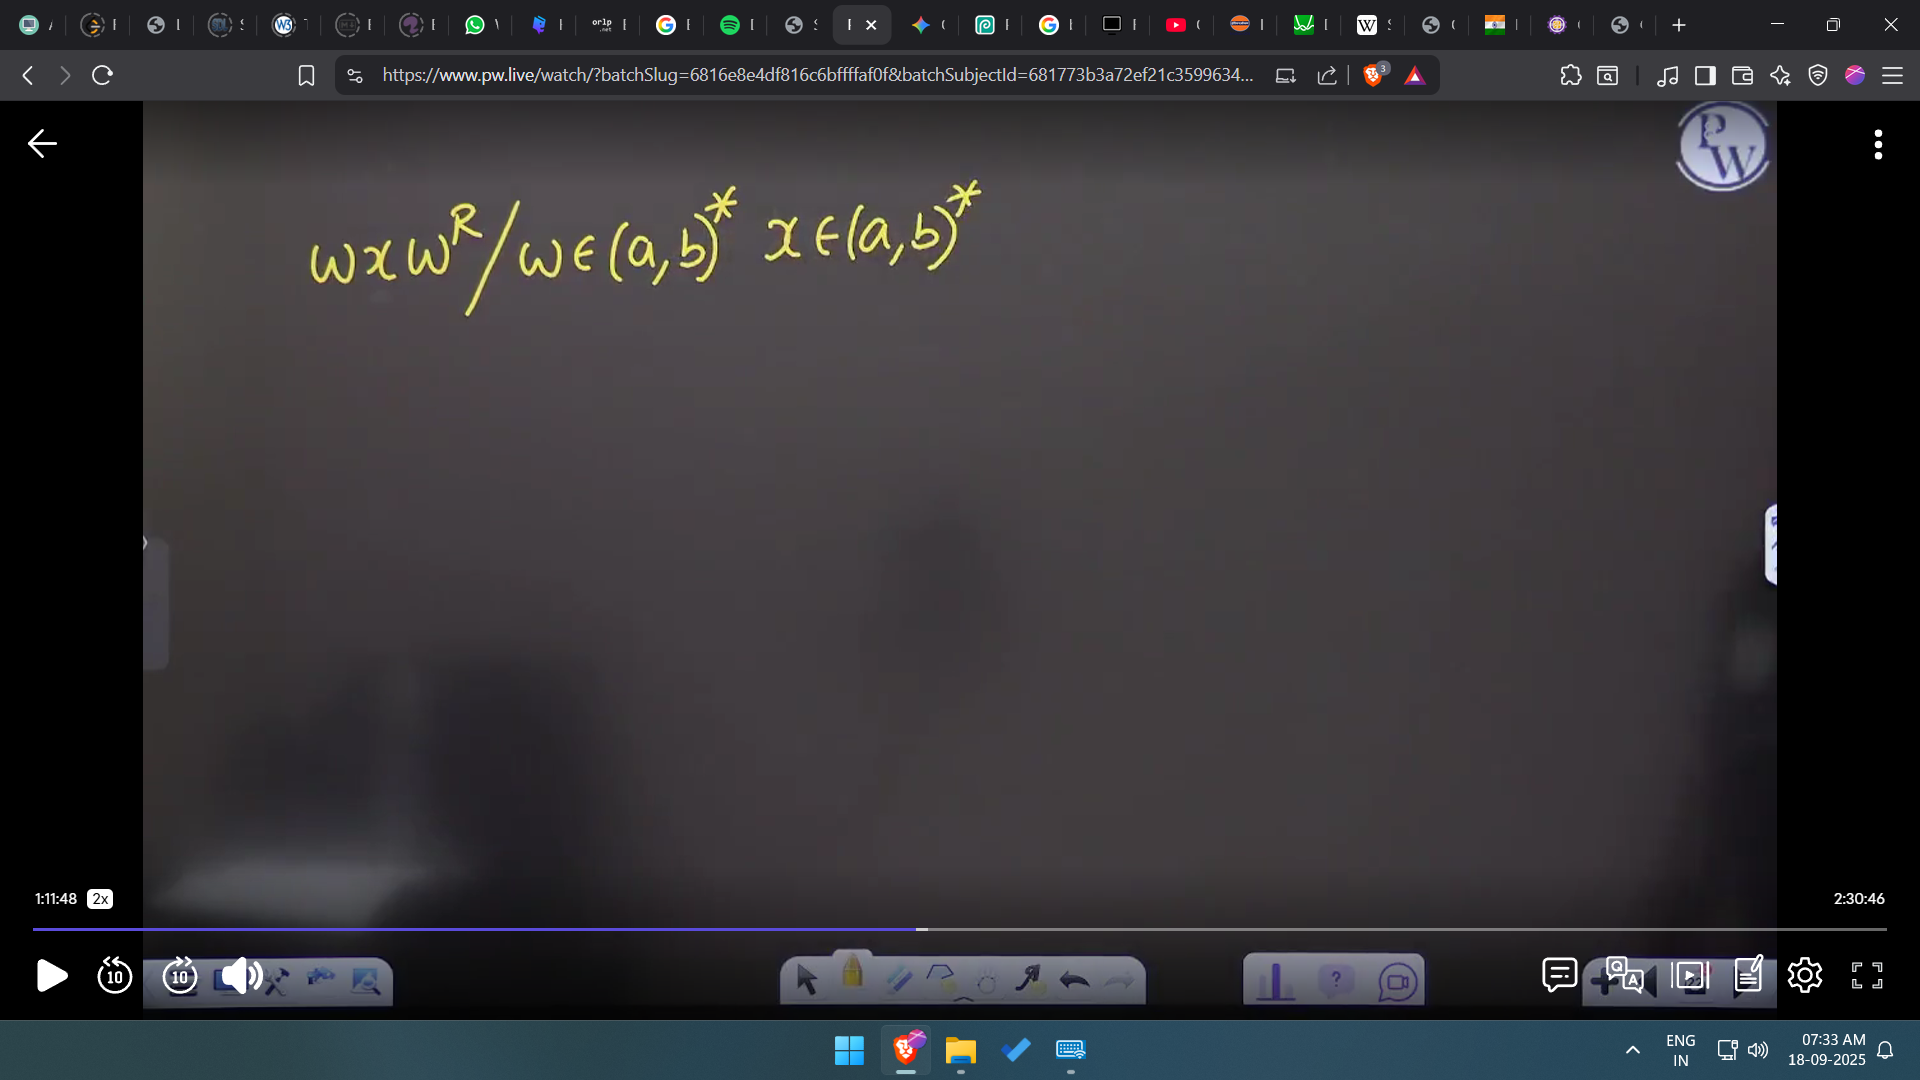 https://www.pw.live/watch/?batchSlug=6816e8e4df816c6bffffaf0f&batchSubjectId=681773b3a72ef21c3599634...
3
PW
wxw^R/w∈(a,b)^* x∈(a,b)^*
1:11:48 2x
2:30:46
10 10
ENG
IN
07:33 AM
18-09-2025